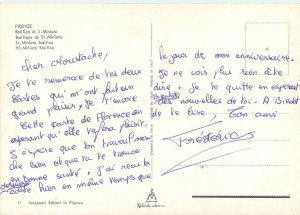 FIRENZE
Basilica di S. Miniato
Basilique de St. Miniato
St. Miniato Basilica
St. Miniato Basilica
Cher Moustache,
Je te remercie de tes deux
cartes qui m'ont fait un
grand plaisir, je t'envoie
cette carte de Florence en
espérant qu'elle te fera plaisir.
J'espère que ton travail marche
bien et que ça te trouve
en bonne santé. J'ai reçu ta
dernière carte hier en même temps que
le jour de mon anniversaire.
Je ne vois plus rien à te
dire. Je te quitte en espérant
Bientôt des nouvelles de toi. A Bientôt
de te lire. Ton ami
Frédéric
Innocenti Editori in Firenze